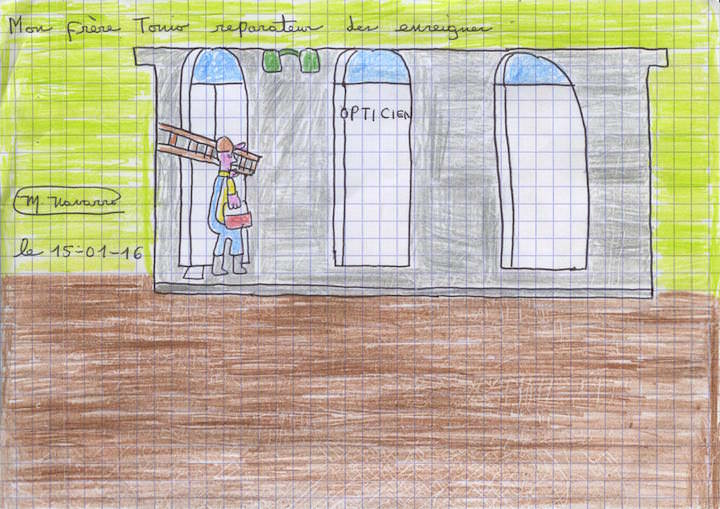 Mon frère Tonio reparateur des enseignes
OPTICIEN
M. Navarro
le 15-01-16